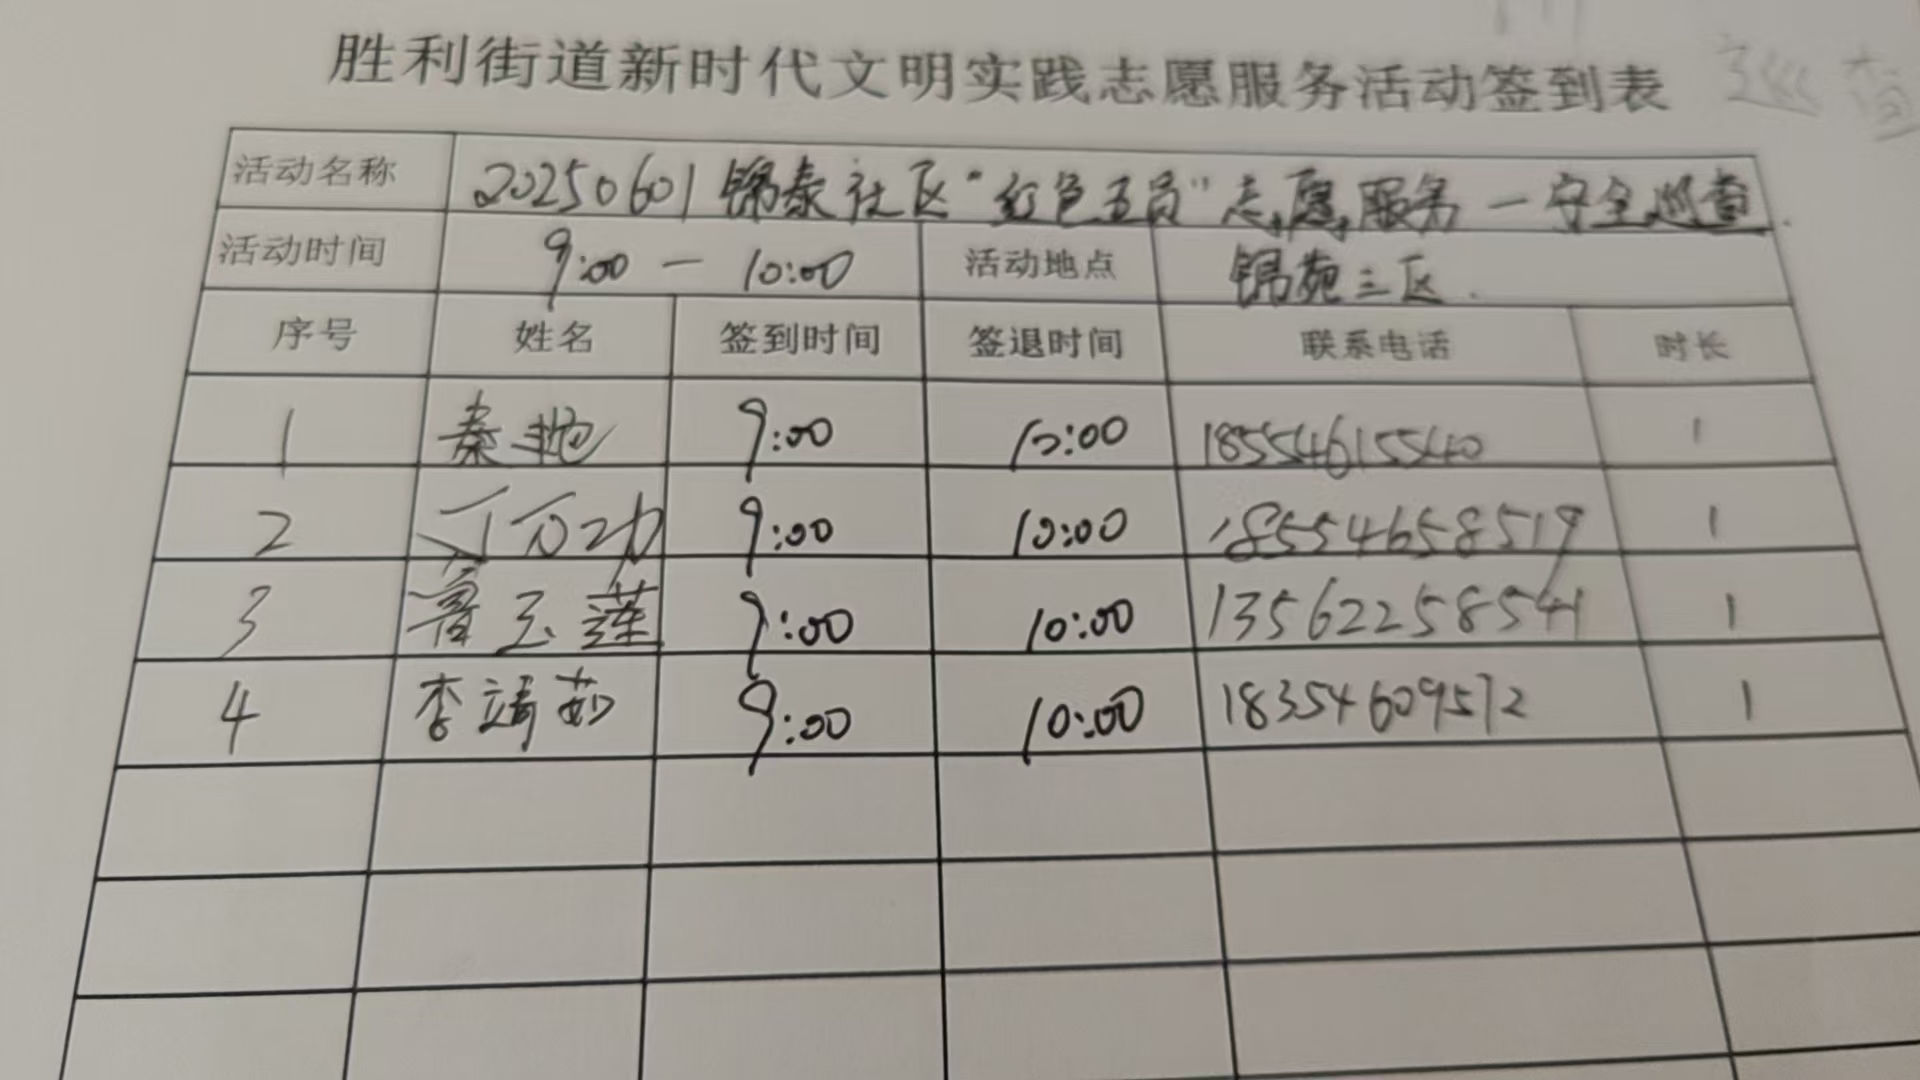 胜利街道新时代文明实践志愿服务活动签到表
巡查
活动名称 20250601锦泰社区“红色五员”志愿服务—安全巡查
活动时间 9:00 — 10:00 活动地点 锦苑三区
序号 姓名 签到时间 签退时间 联系电话 时长
1 秦艳 9:00 10:00 18554615540 1
2 丁万功 9:00 10:00 18554658519 1
3 鲁玉莲 9:00 10:00 13562258541 1
4 李靖茹 9:00 10:00 18354609572 1